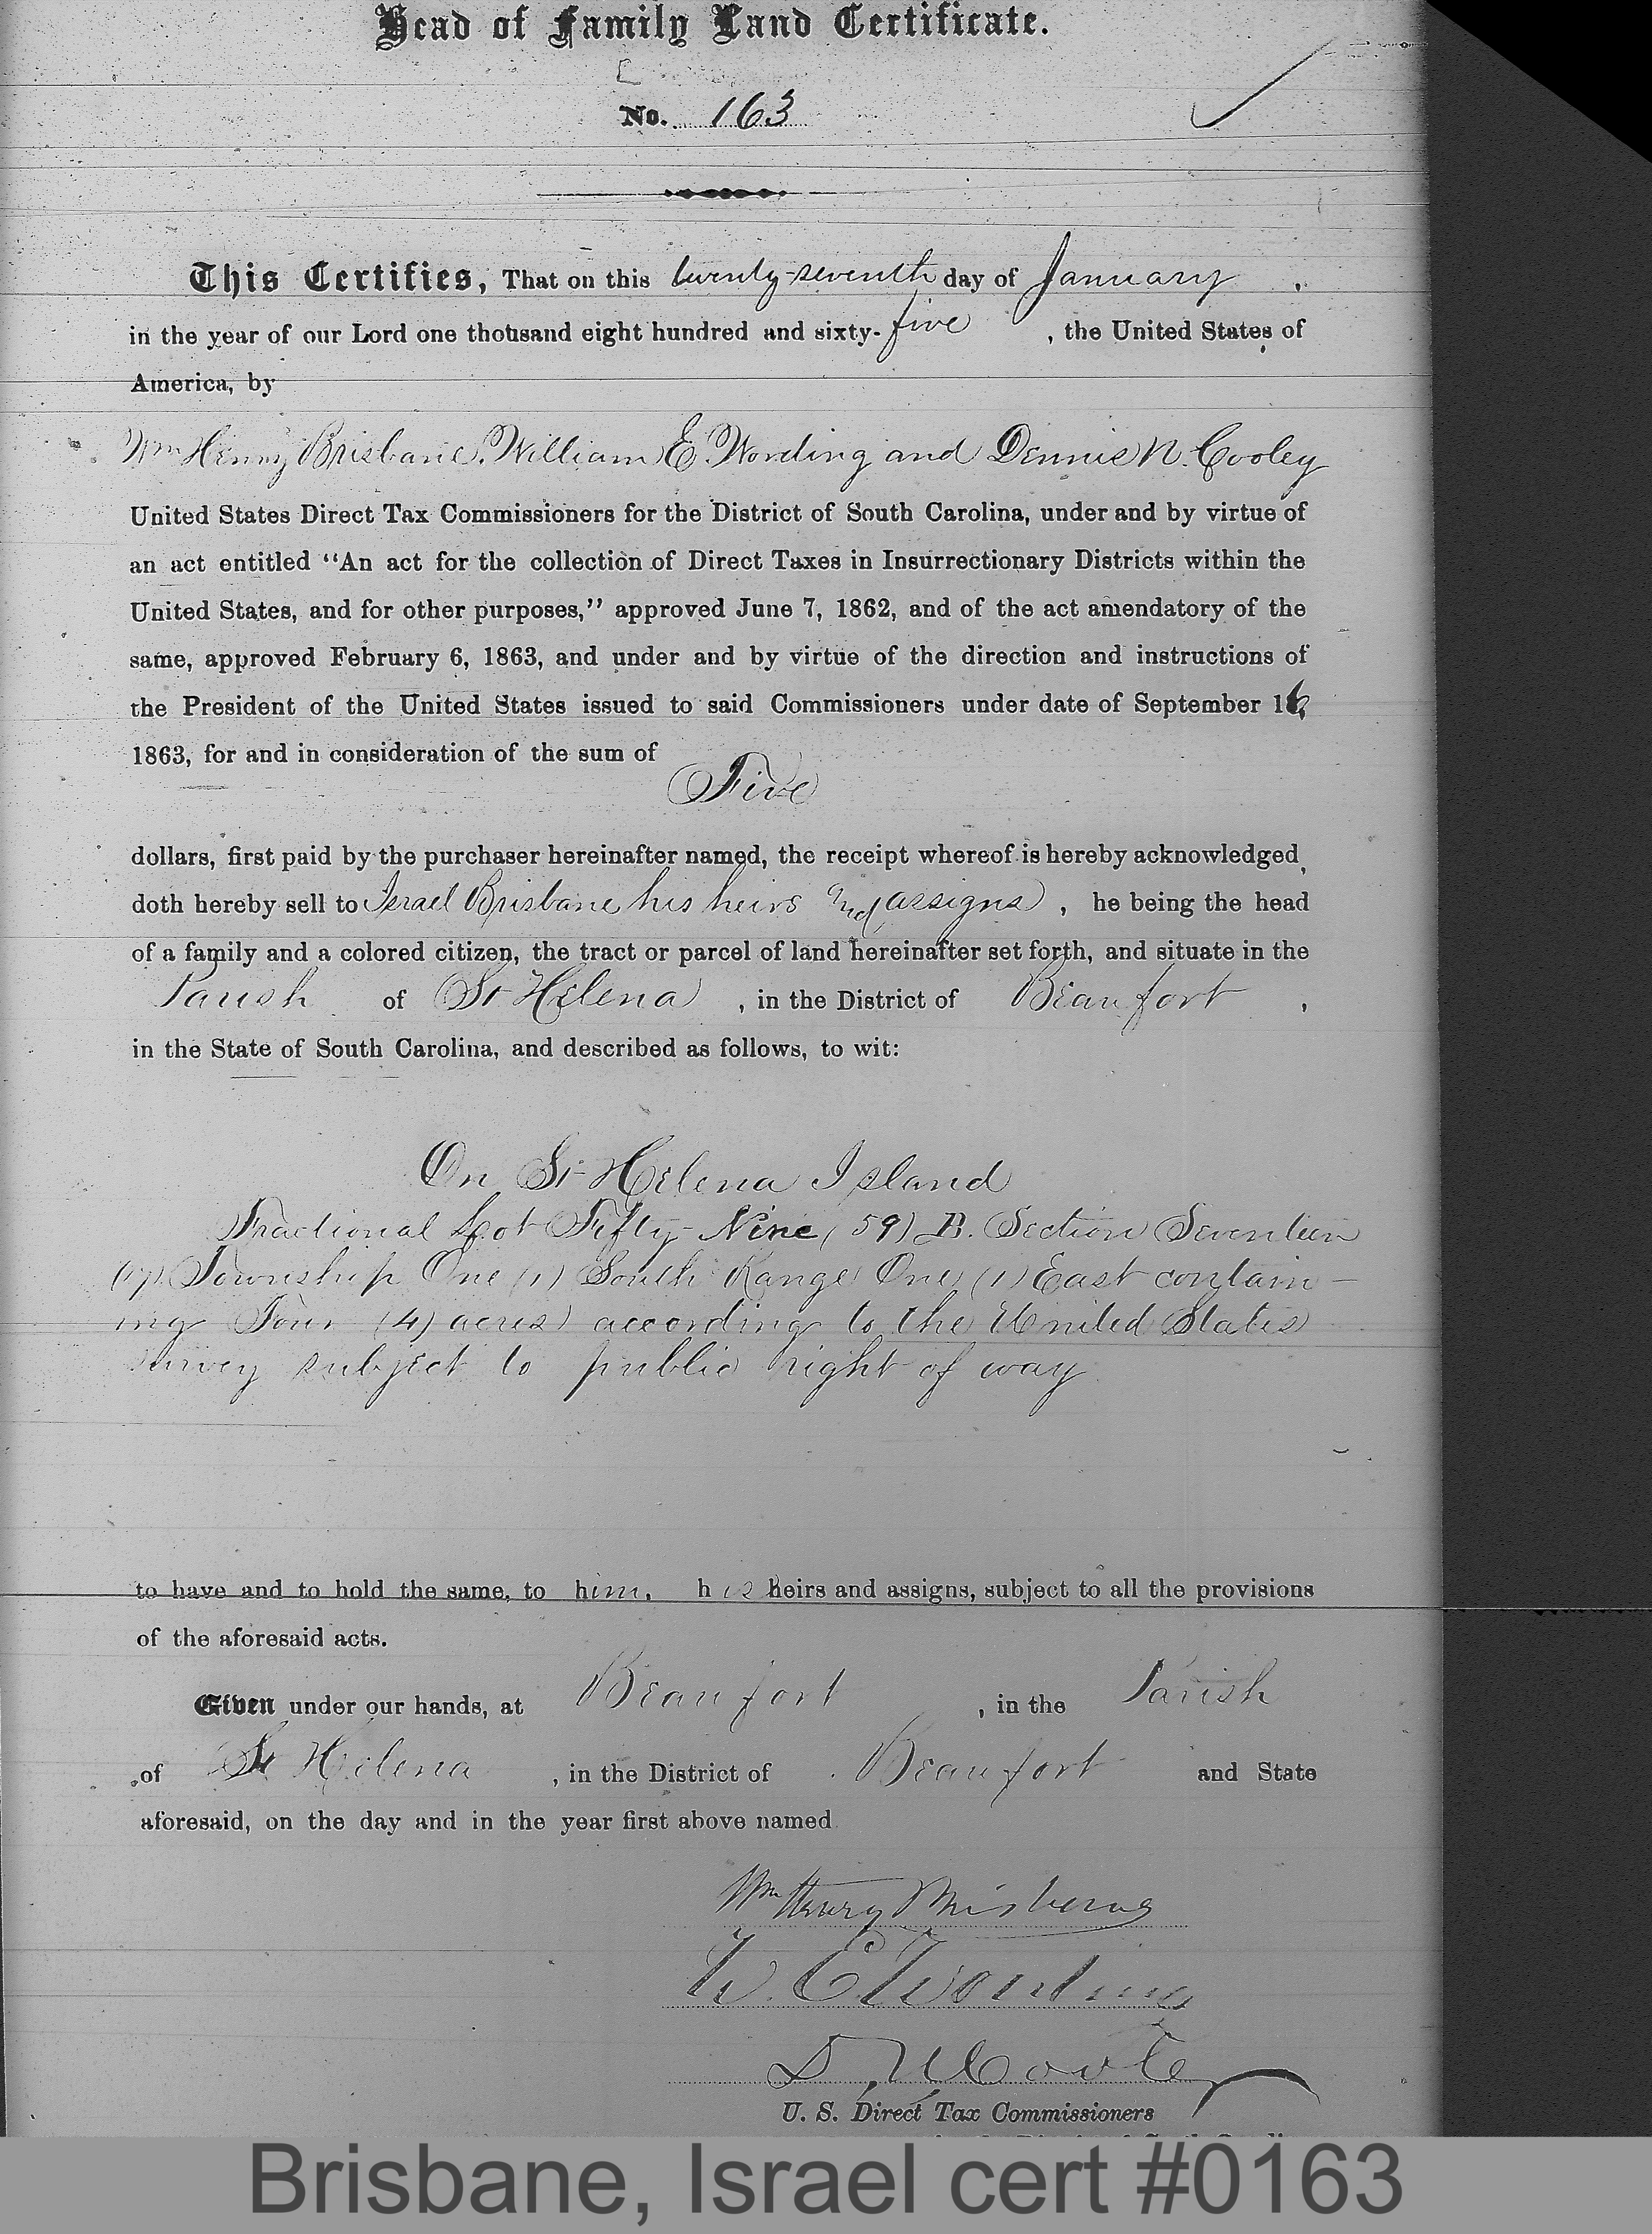 Head of Family Land Certificate.
No. 163
This Certifies, That on this twenty-seventh day of January,
in the year of our Lord one thousand eight hundred and sixty-five, the United States of
America, by
Wm Henry Brisbane, William E. Wording and Dennis N. Cooley
United States Direct Tax Commissioners for the District of South Carolina, under and by virtue of
an act entitled "An act for the collection of Direct Taxes in Insurrectionary Districts within the
United States, and for other purposes," approved June 7, 1862, and of the act amendatory of the
same, approved February 6, 1863, and under and by virtue of the direction and instructions of
the President of the United States issued to said Commissioners under date of September 16,
1863, for and in consideration of the sum of
Five
dollars, first paid by the purchaser hereinafter named, the receipt whereof is hereby acknowledged,
doth hereby sell to Israel Brisbane his heirs and assigns, he being the head
of a family and a colored citizen, the tract or parcel of land hereinafter set forth, and situate in the
Parish of St Helena, in the District of Beaufort,
in the State of South Carolina, and described as follows, to wit:
On St Helena Island
Fractional Lot Fifty-Nine (59) B. Section Seventeen
(17) Township One (1) South Range One (1) East contain-
ing Four (4) acres according to the United States
survey subject to public right of way
to have and to hold the same, to him, his heirs and assigns, subject to all the provisions
of the aforesaid acts.
Given under our hands, at Beaufort, in the Parish
of St Helena, in the District of Beaufort and State
aforesaid, on the day and in the year first above named
Wm Henry Brisbane
W. E. Wording
D. N. Cooley
U. S. Direct Tax Commissioners
Brisbane, Israel cert #0163